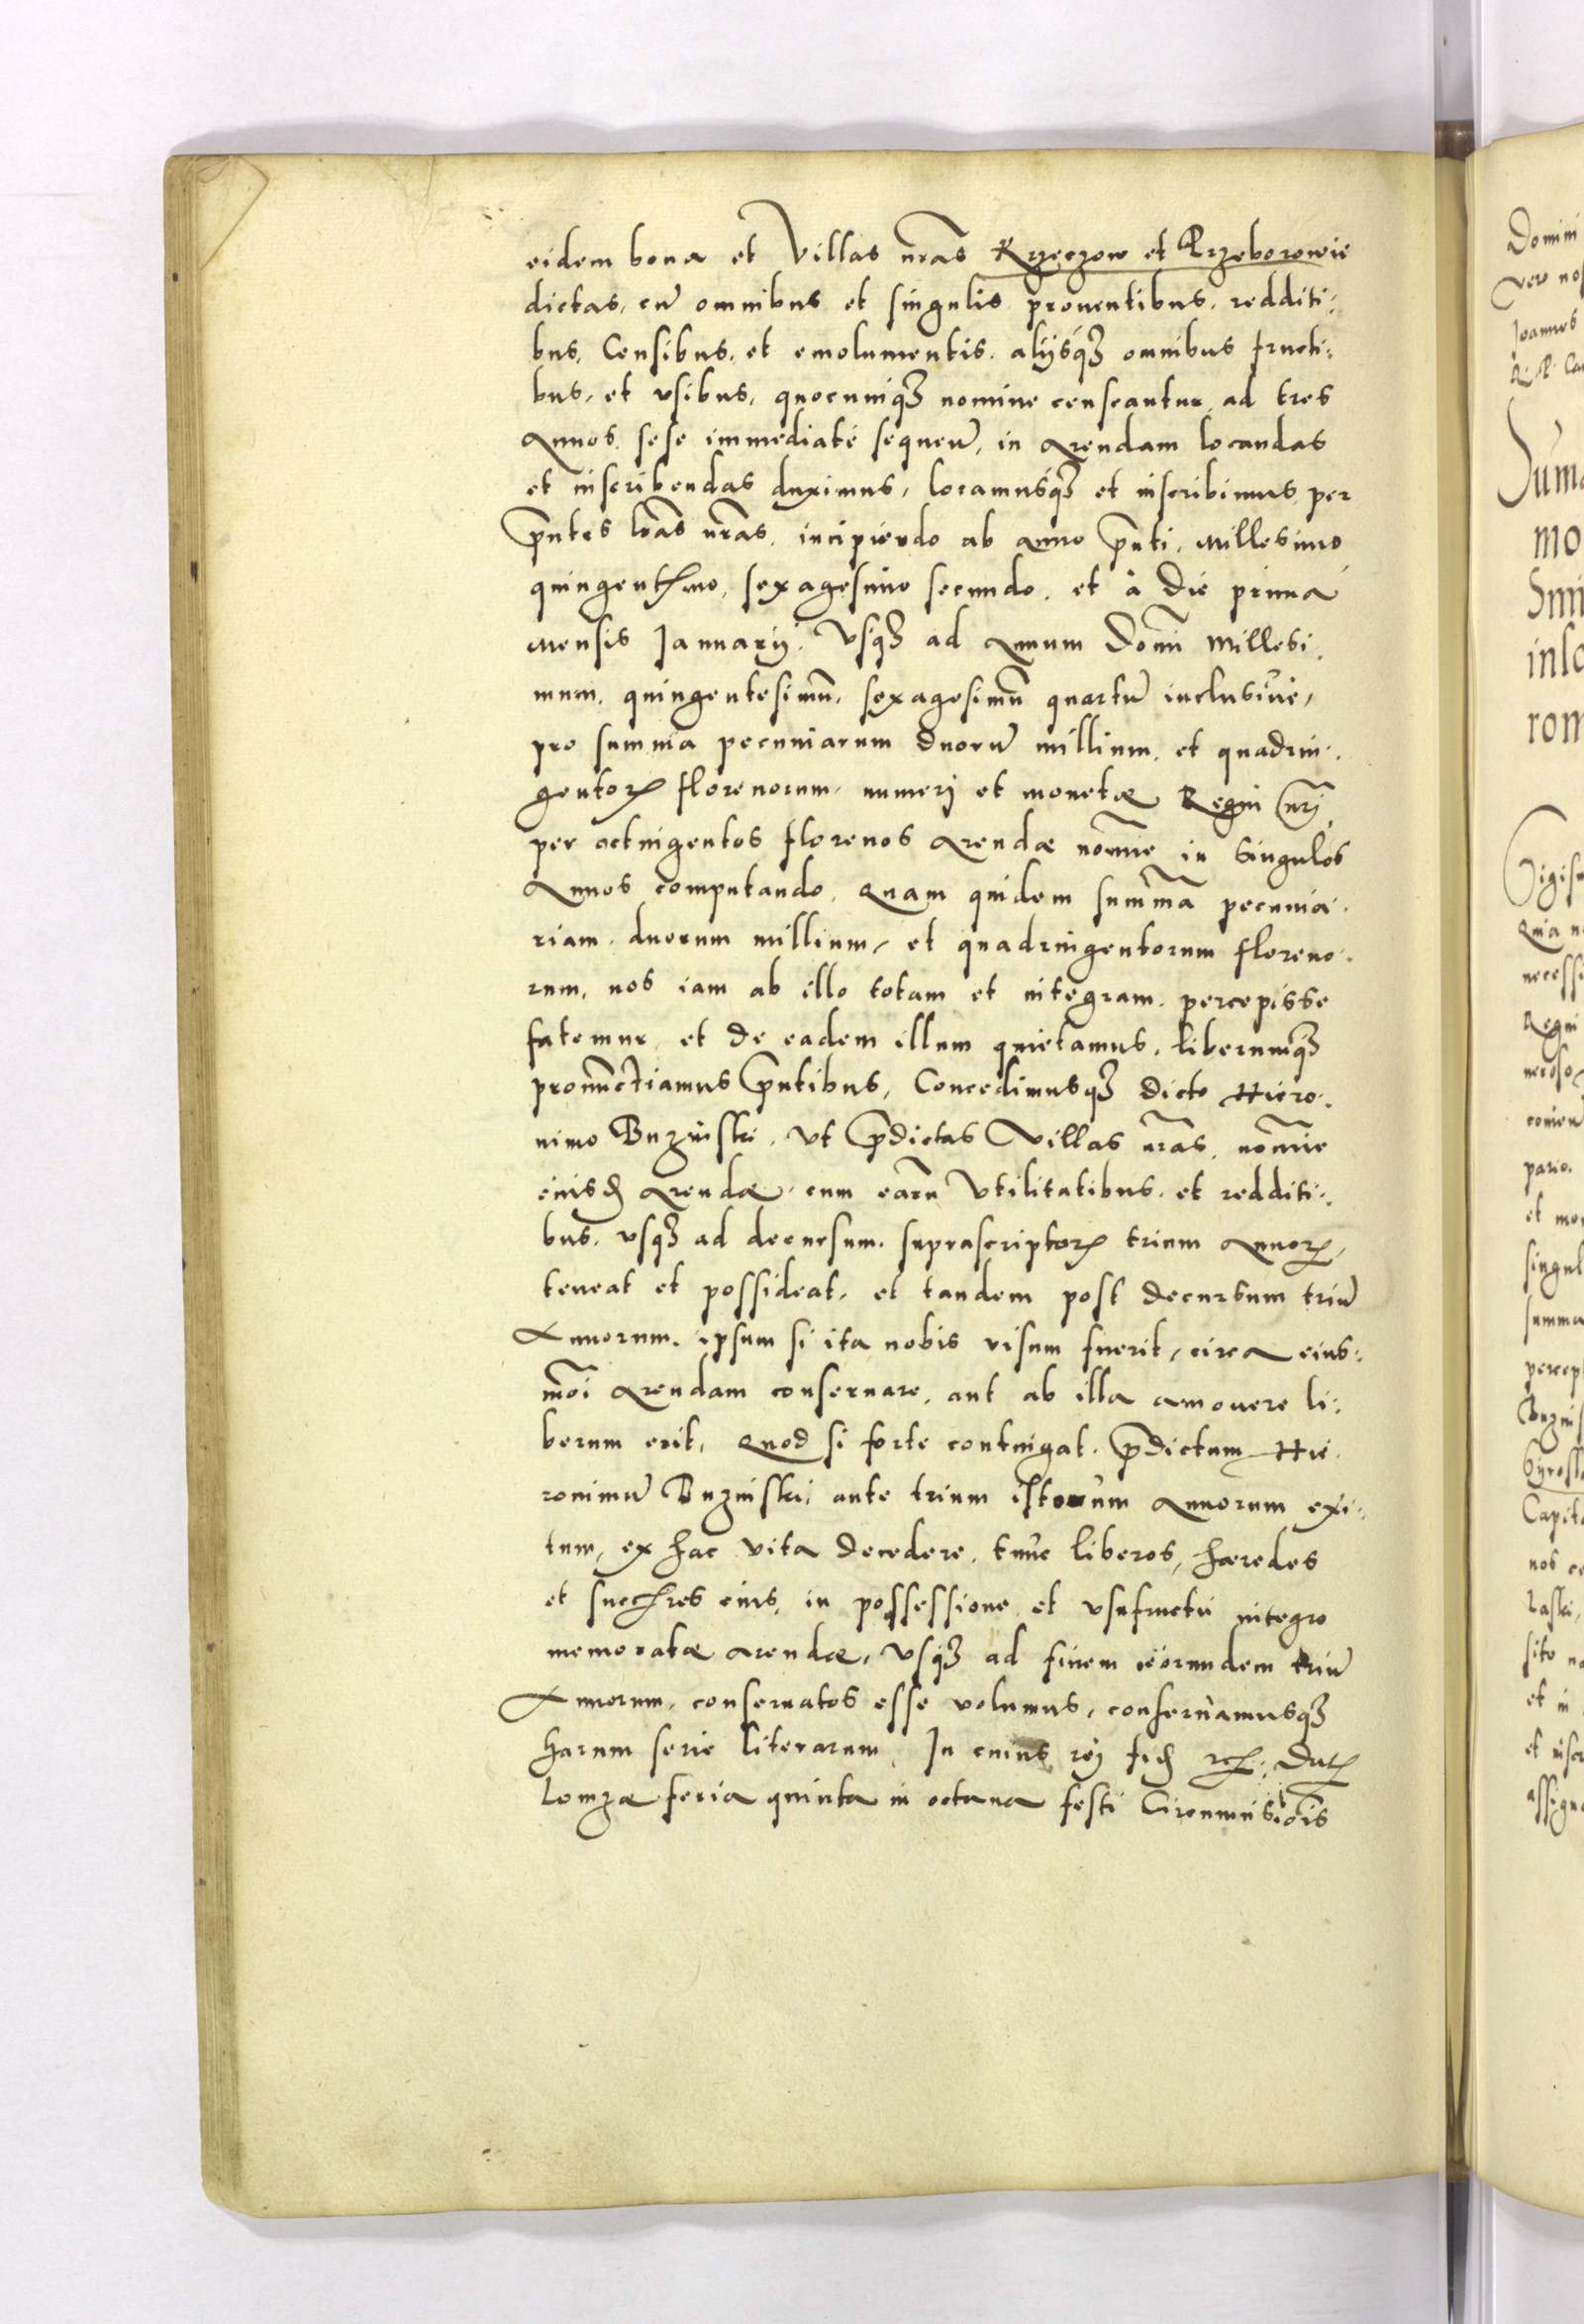 eidem bona et Villas nr̃as Krzeczow et Krzeborowie
dictas, cũ omnibus et singulis prouentibus, redditi:
bus, Censibus, et emolumentis, alijsq́ʒ omnibus fructi:
bus, et vsibus, quocunqʒ nomine censeantur, ad tres
Annos sese immediaté sequeñ, in Arendam locandas
et inscribendas duximus, locamusq́ʒ et inscribimus per
p̃ntes lr̃as nr̃as, incipiendo ab anno p̃nti, Millesimo
quingentmo, sexagesimo secundo, et à die prima
Mensis Januarij, Vsqʒ ad Annum Domĩ Millesi:
mum, quingentesimũ, sexagesimũ quartũ inclusiue,
pro summa pecuniarum duorũ millium, et quadrin:
gentorꝝ florenorum, numerj et monetæ Regni nr̃j
per octingentos florenos Arendæ nomĩe in singulos
Annos computando, Quam quidem sum̃ma pecunia:
riam, duorum millium, et quadringentorum floreno:
rum, nos iam ab illo totam et integram, percepisse
fatemur, et de eadem illum quietamus, liberumq́ʒ
pronunctiamus p̃ntibus, Concedimusqʒ dicto Hiero:
nimo Buzinski, Vt p̃dictas Villas nr̃as, nomĩe
eiusd Arendæ, cum earũ Vtilitatibus, et redditi:
bus, vsqʒ ad decursum suprascriptorꝝ trium Annorꝝ,
teneat et possideat, et tandem post decursum triũ
Annorum, ipsum si ita nobis visum fuerit, circa eius:
mõi Arendam conseruare, aut ab illa amouere li:
berum erit, Quod si forte contingat, p̃dictum Hie:
ronimũ Buzinski, ante trium istorum Annorum exi:
tum, ex hac vita decedere, tunc liberos, hæredes
et succres eius, in possessione et vsufructu integro
memoratæ arendæ, Vsqʒ ad finem eorundem triũ
Annorum, conseruatos esse volumus, conseruamusqʒ
harum serie literarum, In cuius rej fid rcꝝ: Datꝝ
Lomzæ feria quinta in octaua festi Circumcisiõis